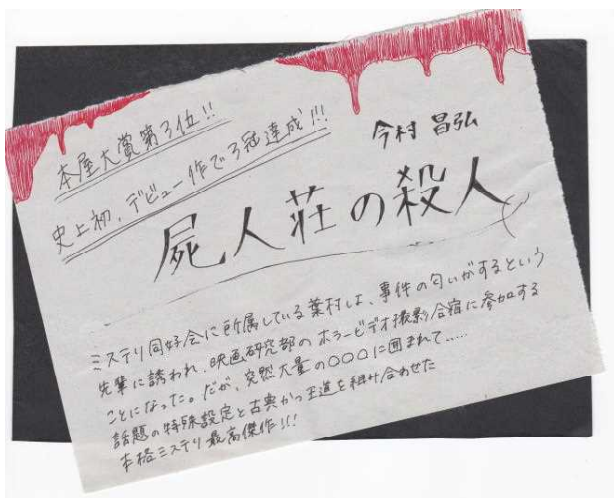 本屋大賞第3位!!
史上初、デビュー作で3冠達成!!!
今村 昌弘
屍人荘の殺人
ミステリ同好会に所属している葉村は、事件の匂いがするという
先輩に誘われ、映画研究部のホラービデオ撮影合宿に参加する
ことになった。だが、突然大量の○○○に囲まれて……
話題の特殊設定と古典かつ王道を組み合わせた
本格ミステリ最高傑作!!!